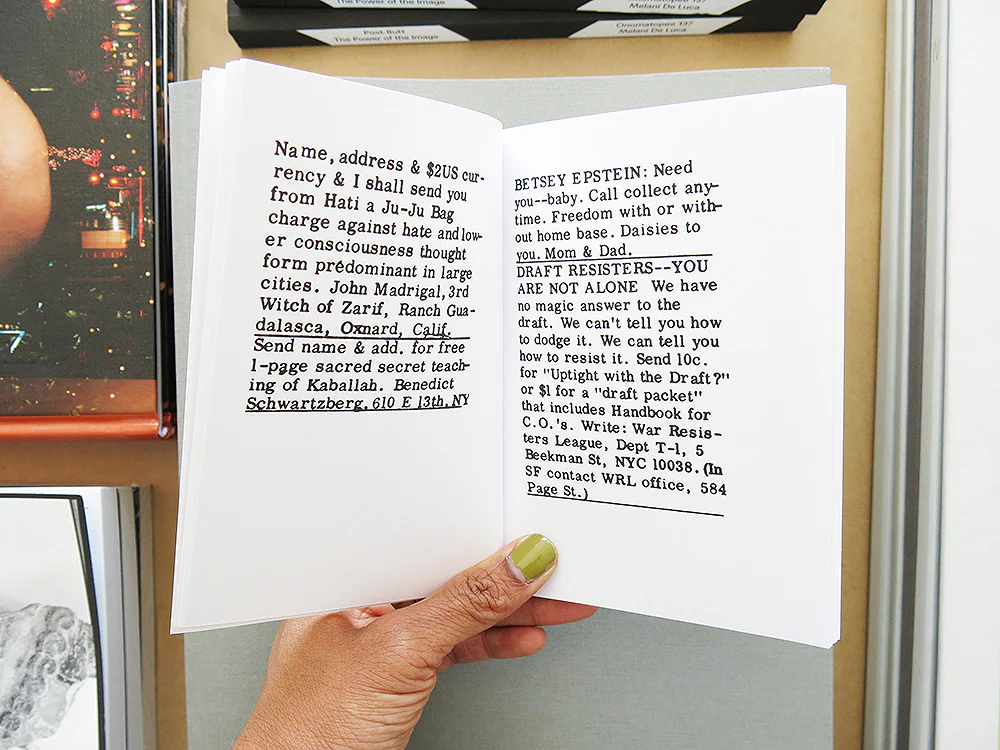 Post-Butt
The Power of the Image
Onomatopee 137
Melani De Luca
Name, address & $2US cur-
rency & I shall send you
from Hati a Ju-Ju Bag
charge against hate and low-
er consciousness thought
form prédominant in large
cities. John Madrigal, 3rd
Witch of Zarif, Ranch Gua-
dalasca, Oxnard, Calif.
Send name & add. for free
1-page sacred secret teach-
ing of Kaballah. Benedict
Schwartzberg, 610 E 13th, NY
BETSEY EPSTEIN: Need
you--baby. Call collect any-
time. Freedom with or with-
out home base. Daisies to
you. Mom & Dad.
DRAFT RESISTERS--YOU
ARE NOT ALONE We have
no magic answer to the
draft. We can't tell you how
to dodge it. We can tell you
how to resist it. Send 10c.
for "Uptight with the Draft?"
or $1 for a "draft packet"
that includes Handbook for
C.O.'s. Write: War Resis-
ters League, Dept T-1, 5
Beekman St, NYC 10038. (In
SF contact WRL office, 584
Page St.)